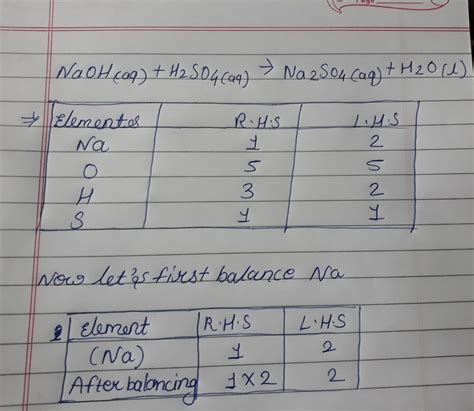 NaOH(aq) + H2SO4(aq) → Na2SO4(aq) + H2O(l)
⇒ Elements R.H.S L.H.S
Na 1 2
O 5 5
H 3 2
S 1 1
Now let's first balance Na
Element R.H.S L.H.S
(Na) 1 2
After balancing 1×2 2